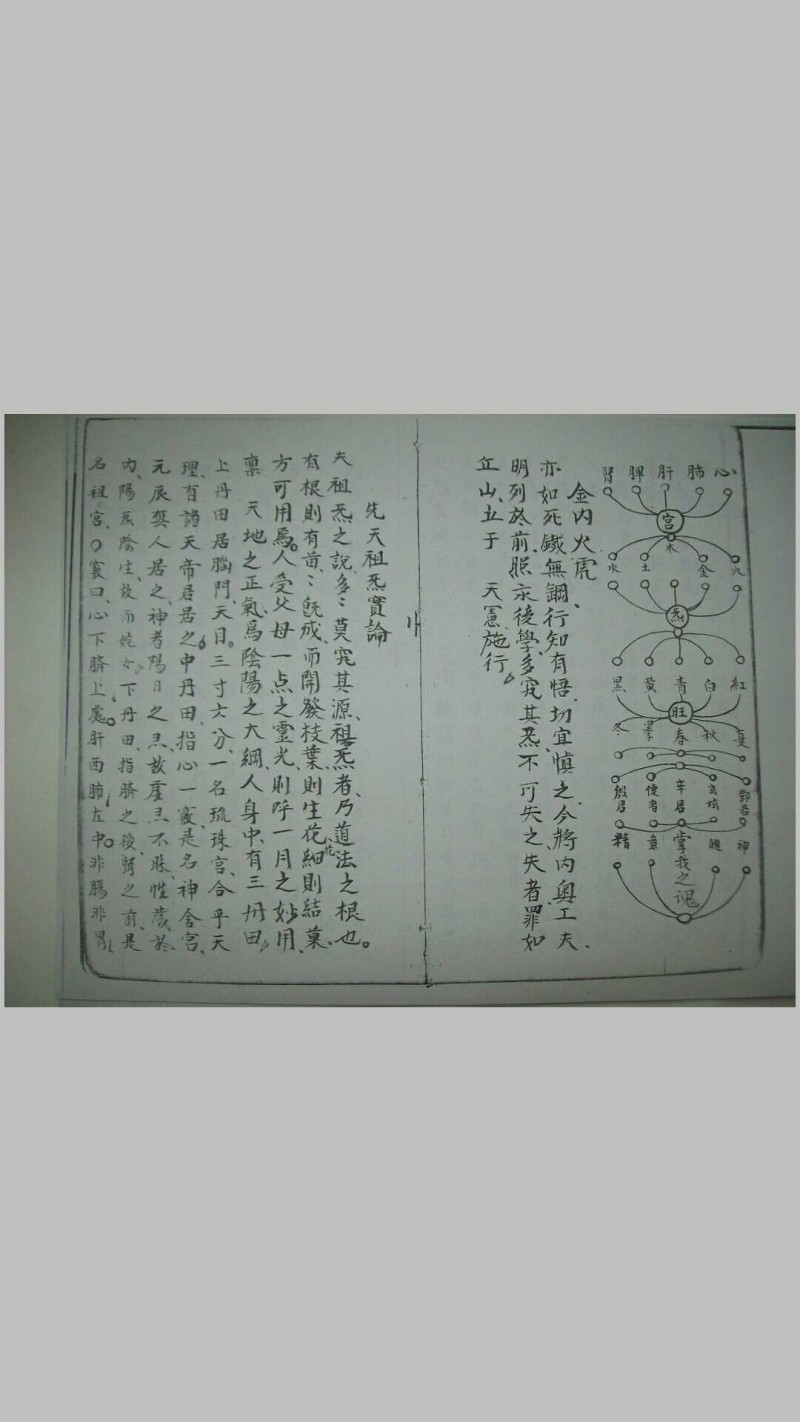 腎 脾 肝 肺 心
宮
水 土 木 金 火
炁
黑 黃 青 白 紅
旺
冬 季 春 秋 夏
殷君 使者 辛君 鄧君
精 意 掌我之魂 魄 神
金內火虎
亦如死鐵無鋼、行知有悟、切宜慎之、今將內奧工夫、
明列於前、照示後學、多究其炁、不可失之、失者罪如
丘山、五于 天憲施行
先天祖炁實論
夫祖炁之說、多〻莫究其源、祖炁者、乃道法之根也。
有根則有苗、〻既成、而開發枝葉、則生花、花細則結菓、
方可用焉。人受父母一点之靈光、則呼一月之妙用、
稟 天地之正氣、為陰陽之大綱、人身中、有三丹田、
上丹田居腦門、天目。三寸六分、一名琉珠宮、合乎天
理、有諸天帝君居之、中丹田、指心一竅、是名神舍宮、
元辰真人居之、神者陽日之炁、故虛炁不脹、性藏於
內、陽炁陰生、故而姹女、下丹田、指臍之後、腎之前、是
名祖宮、〇竅曰、心下臍上處。肝西肺左中。非腸非胃